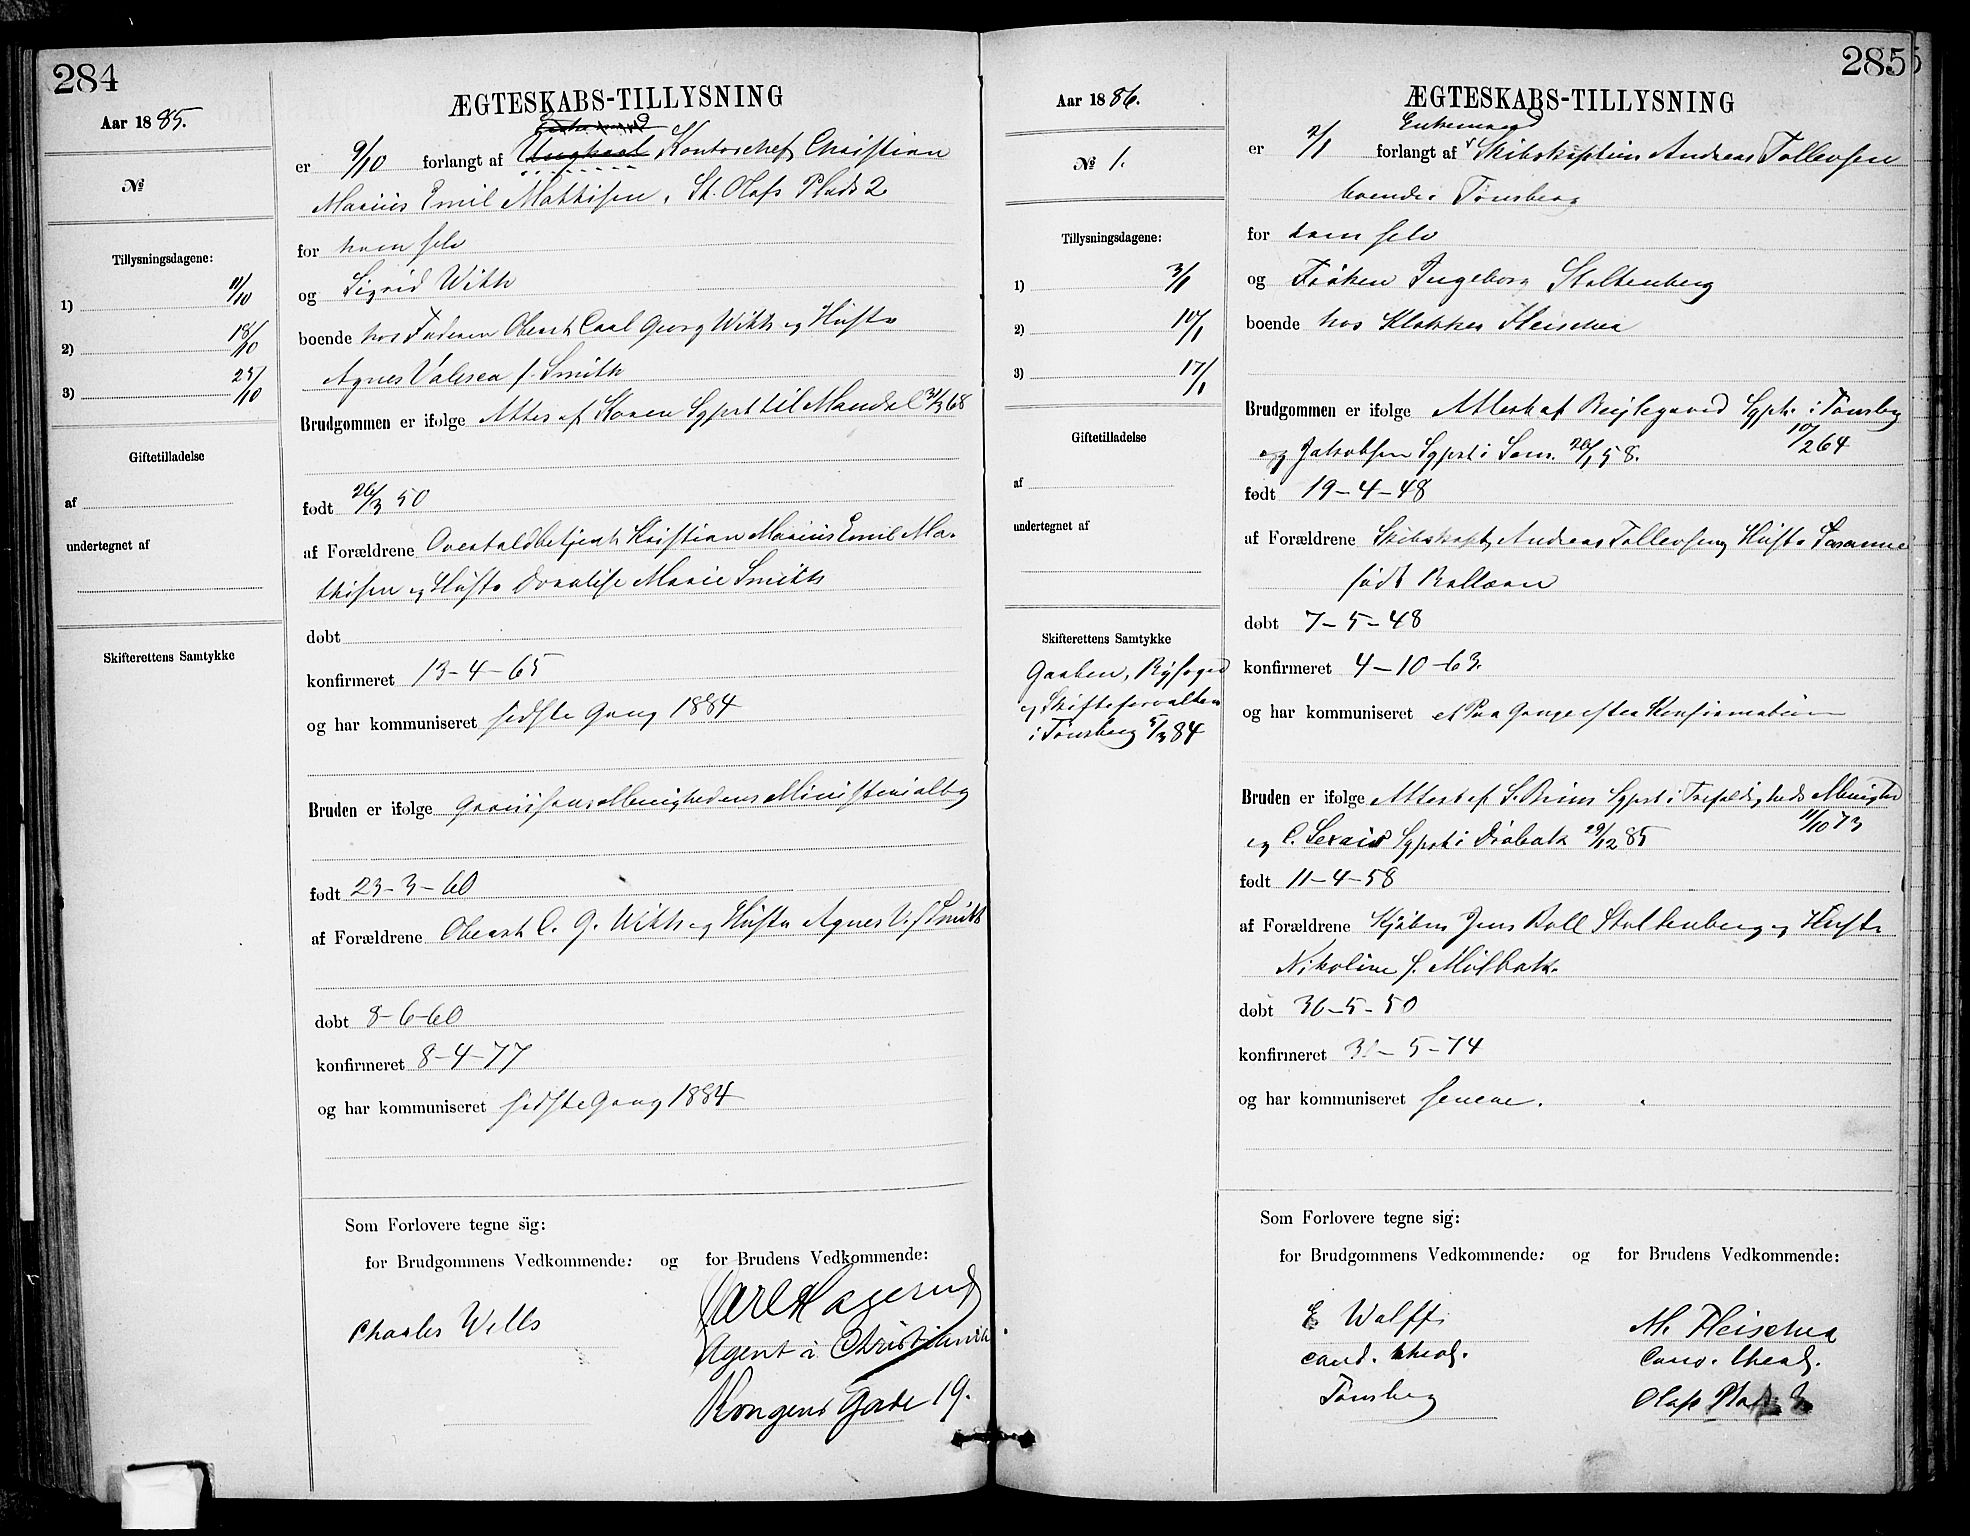 284
Aar 1885.
№
Tillysningsdagene:
1) 11/10
2) 18/10
3) 25/10
Giftetilladelse
af
undertegnet af
Skifterettens Samtykke
ÆGTESKABS-TILLYSNING
er 9/10 forlangt af Ungkarl, Kontorchef Christian
Marius Emil Mathisen, St. Olafs Plads 2
for ham selv
og Sigrid Wikth
boende hos Faderen Oberst Carl Georg Wikth og Hustr
Agnes Valesca f. Smith
Brudgommen er ifølge Attest af Sgprst til Mandal 68
født 26/3 50
af Forældrene Overtoldbetjent Kristian Marius Emil Ma-
thisen og Hustr Marie Smith
døbt
konfirmeret 13-4-65
og har kommuniseret sidste Gang 1884
Bruden er ifølge Garnisonsmenighedens Ministerialbog
født 23-3-60
af Forældrene Oberst C. G. Wikth og Hustr Agnes V. f. Smith
døbt 8-6-60
konfirmeret 8-4-77
og har kommuniseret sidste Gang 1884
Som Forlovere tegne sig:
for Brudgommens Vedkommende: og for Brudens Vedkommende:
Charles Wells
Carl Hagerud
Agent i Christiania.
Kongens Gade 19.
285
Aar 1886.
№ 1.
Tillysningsdagene:
1) 3/1
2) 10/1
3) 17/1
Giftetilladelse
af
undertegnet af
Skifterettens Samtykke
Byfoged
og Skifteforvalter
i Tønsberg 5/3 84
ÆGTESKABS-TILLYSNING
Enkemand
er 2/1 forlangt af Skibskaptein Andreas Tollevsen
boende i Tønsberg
for ham selv
og Frøken Ingeborg Stoltenberg
boende hos Klokker Fleischer
Brudgommen er ifølge Attest af Sgpr. i Tønsbg
10/2 64
og Jakobsen Sgprst i Sem. 20/1 58.
født 19-4-48
af Forældrene Skibskapt. Andreas Tollevsen og Hustr
født
døbt 7-5-48
konfirmeret 4-10-63.
og har kommuniseret et Par Gange efter Konfirmationen
Bruden er ifølge Attest af Sgprst i Trefoldigheds Menighed
11/10 73
og C. Sgprst i Drøbak 29/12 85
født 11-4-58
af Forældrene Kjøbm Jens Boll Stoltenberg og Hustr
Nikoline f. Møsbak.
døbt 30-5-50
konfirmeret 31-5-74
og har kommuniseret senere.
Som Forlovere tegne sig:
for Brudgommens Vedkommende: og for Brudens Vedkommende:
E Wolff
cand. theol.
Tønsberg
M. Fleischer
Cand. theol.
Olafs Plads